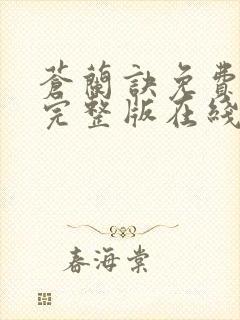 蒼蘭訣免費
完整版在綫
春海棠